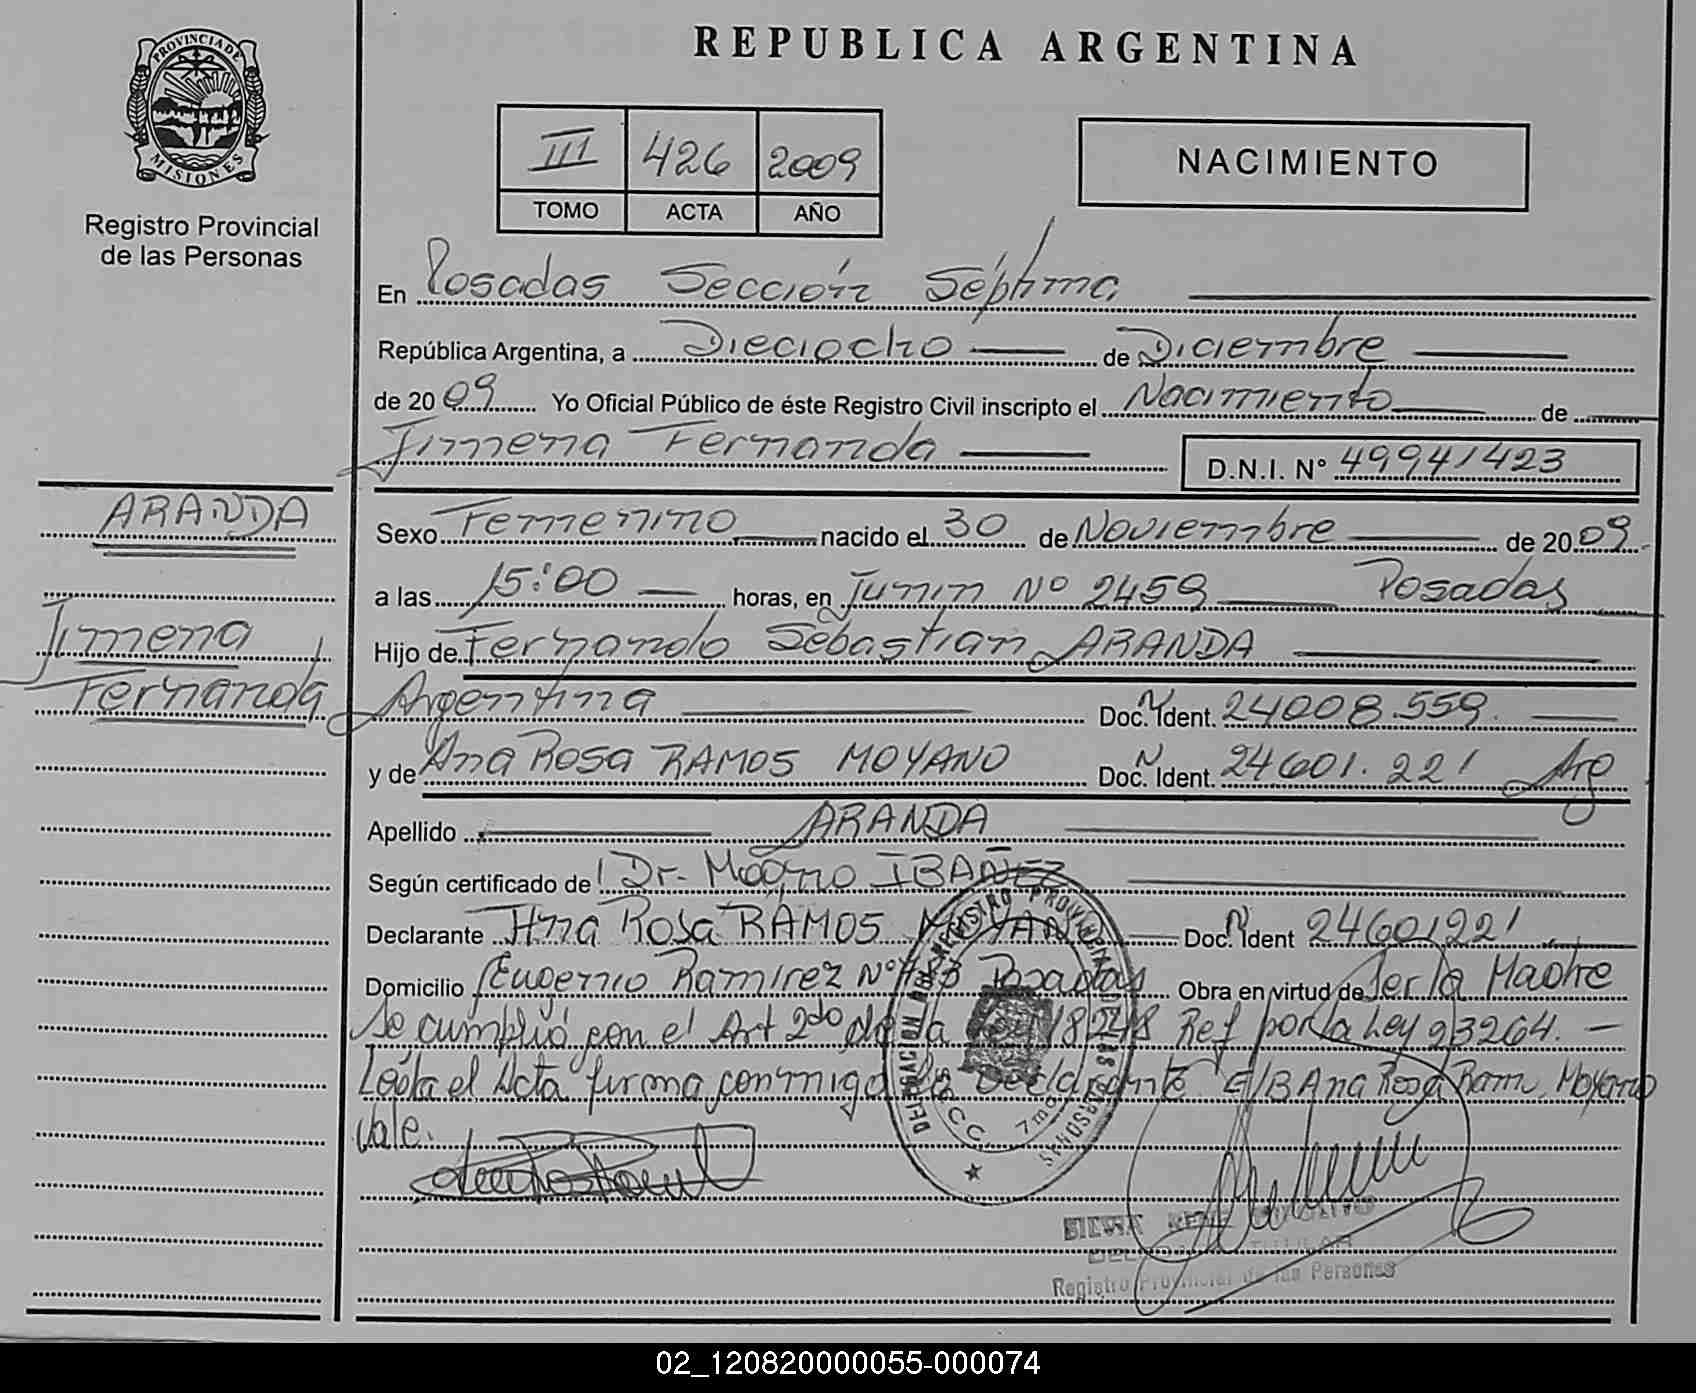 PROVINCIA DE
MISIONES
Registro Provincial
de las Personas
ARANDA
Jimena
Fernanda
REPUBLICA ARGENTINA
III 426 2009
TOMO ACTA AÑO
NACIMIENTO
En Posadas Sección Séptima
República Argentina, a Dieciocho de Diciembre
de 2009 Yo Oficial Público de éste Registro Civil inscripto el Nacimiento de
Jimena Fernanda D.N.I. N° 49941423
Sexo Femenino nacido el 30 de Noviembre de 2009
a las 15:00 horas, en Junin Nº 2459 Posadas
Hijo de Fernando Sebastian ARANDA
Argentina Doc. N Ident. 24008.559
y de Ana Rosa RAMOS MOYANO Doc. N Ident. 24601.221 Arg
Apellido ARANDA
Según certificado de Dr. IBAÑEZ
Declarante Ana Rosa RAMOS MOYANO Doc. N Ident 24601221
Domicilio Eugenio Ramirez Nº Posadas Obra en virtud de Ser la Madre
Se cumplió con el Art 2do de la Ley 18248 Ref por la Ley 23264.-
Leída el Acta firma conmigo la declarante E/B Ana Rosa Ram. Moyano
vale.
DELEGACION DEL REGISTRO PROVINCIAL DE LAS PERSONAS
7ma
Registro Provincial de las Personas
02_120820000055-000074